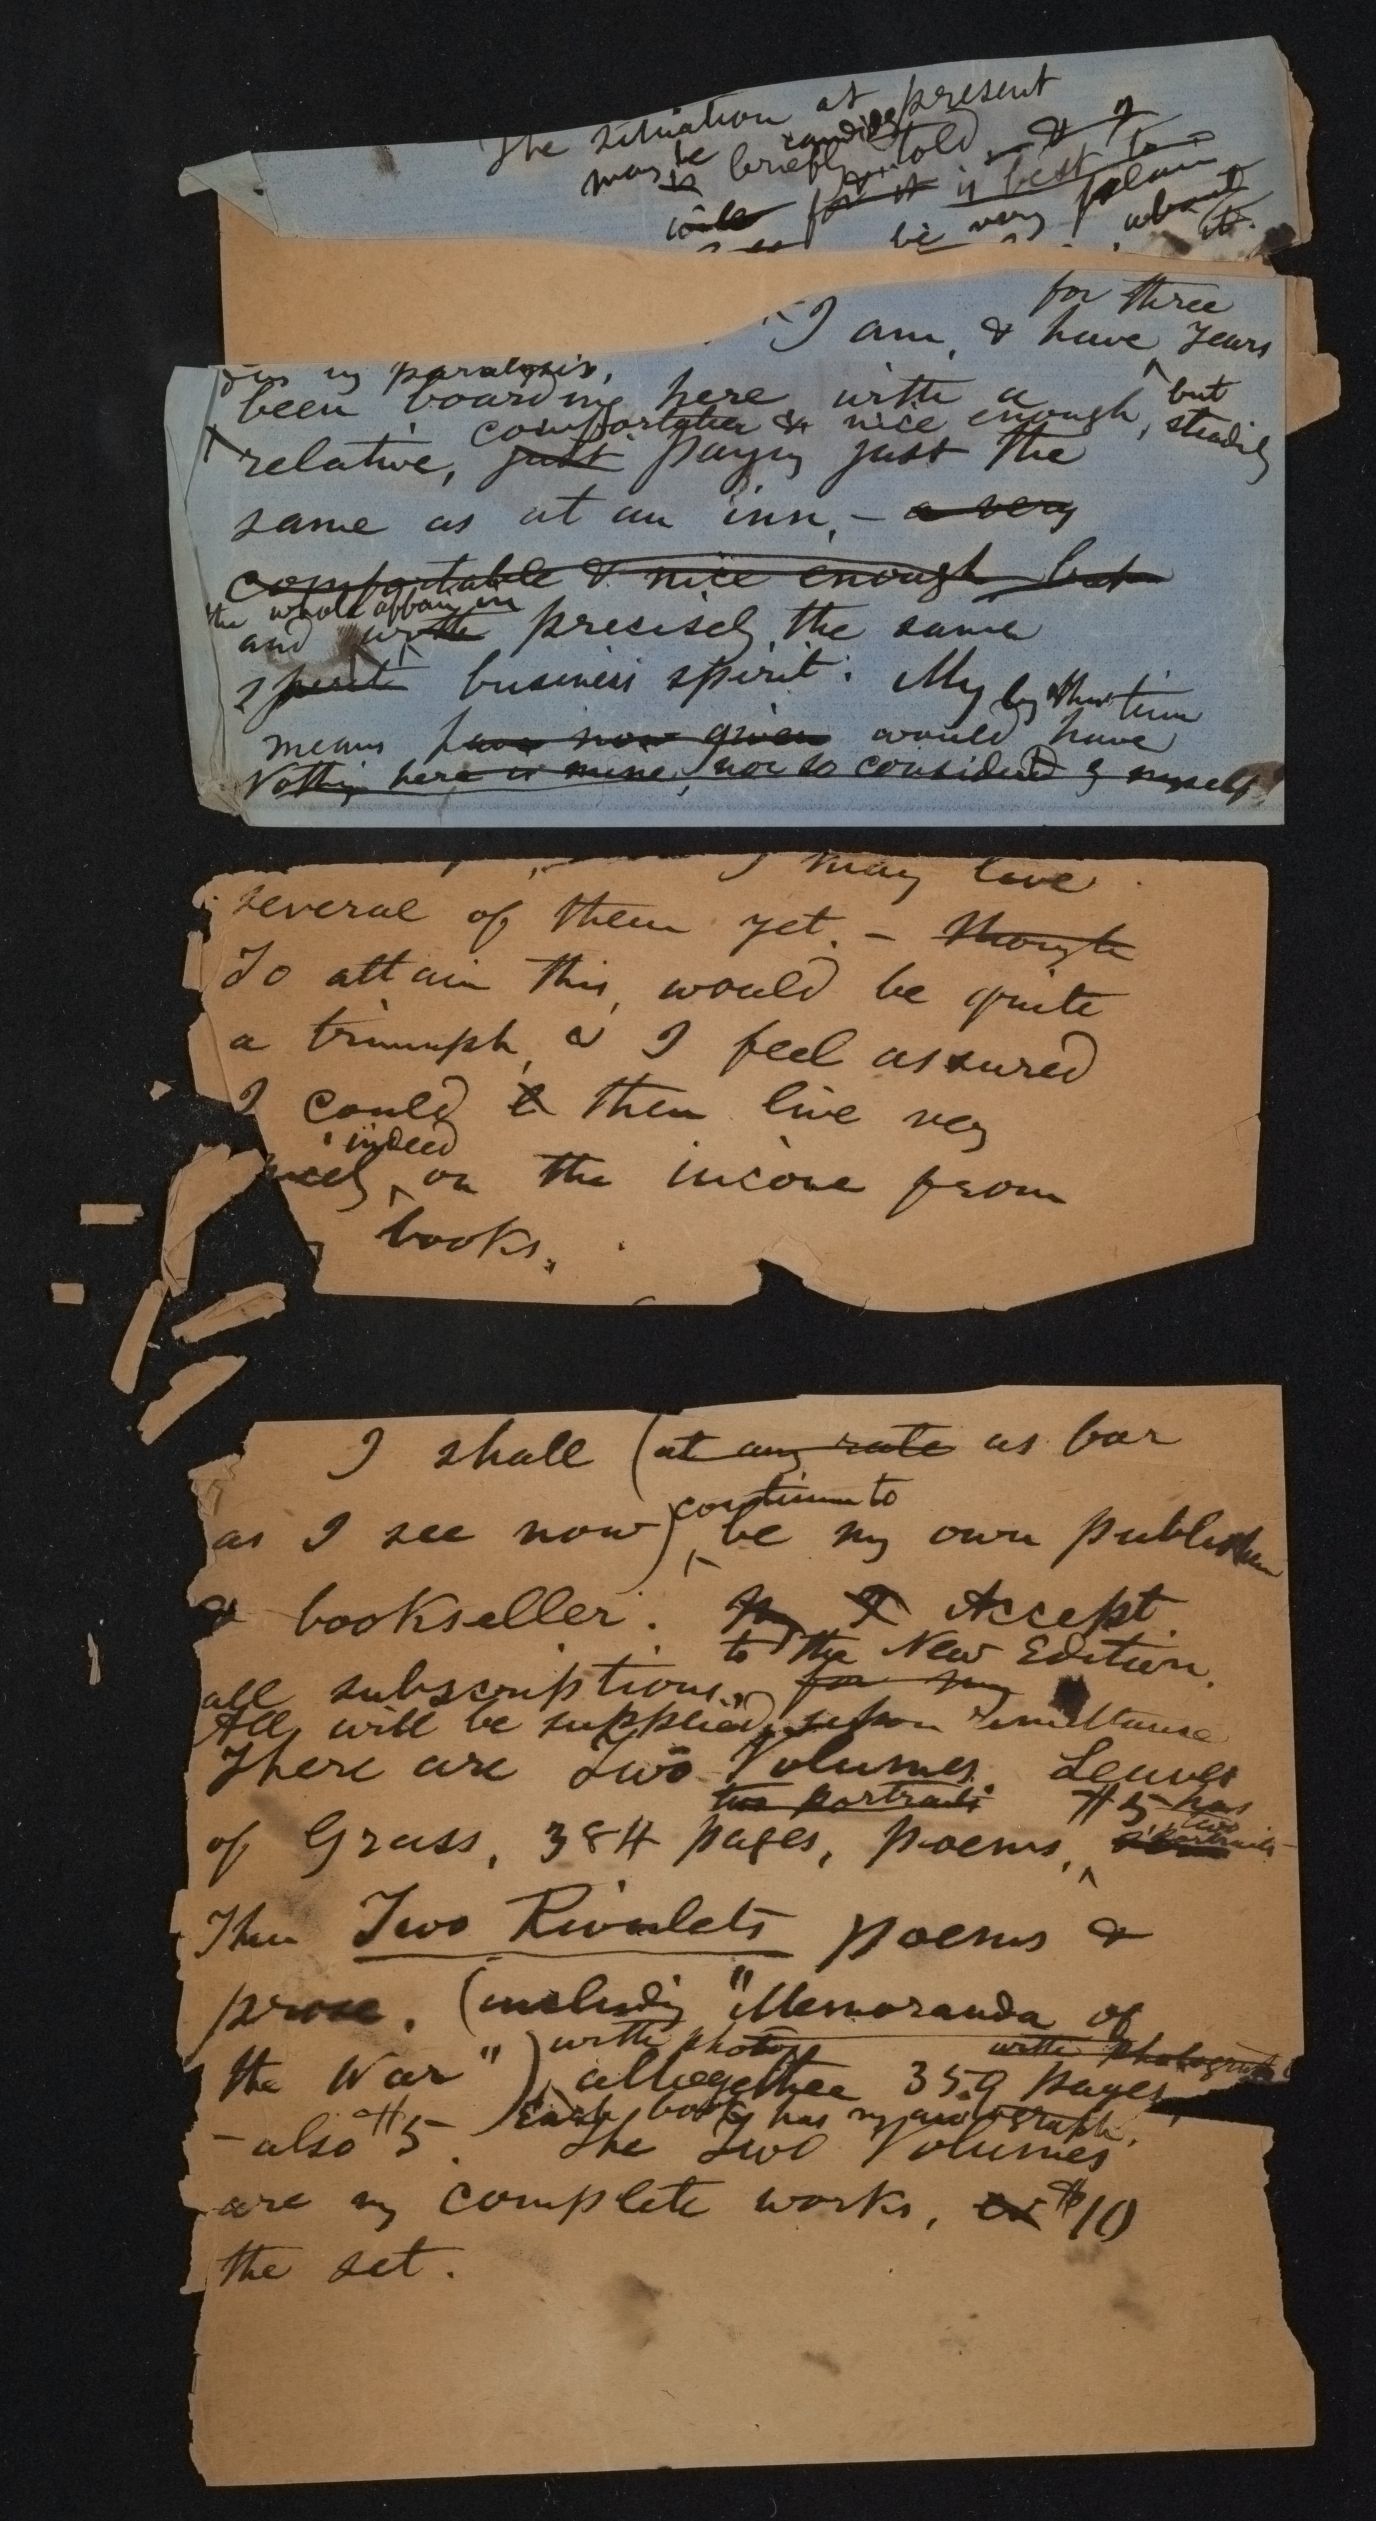 The situation at present
may be briefly candidly told, & I
is
will for it is best to
be very plain
about it.
for three
I am, & have years
in my paralysis,
been boarding here with a but
comfortable & nice enough, steadily
relative, just paying just the
same as at an inn, – a very
comfortable & nice enough but
the whole affair in
and with precisely the same
spirit business spirit. My by this time
means have now given would have
Nothing here is mine, nor so considered by myself
I may live
several of them yet. – though
To attain this, would be quite
a triumph, & I feel assured
I could then live very
indeed
nicely on the income from
books.
I shall (at any rate as bar
continue to
as I see now) be my own publisher
& bookseller. My I Accept
to the New Edition.
all subscriptions, for my
All will be supplied, upon remittance
There are Two Volumes Leaves
two portraits $5 has two portraits
of Grass, 384 pages, poems,
Then Two Rivulets poems &
prose, (including "Memoranda of
with photos with photograph
the War") altogether 359 pages,
Each book has my autograph.
– also $5. The Two Volumes
are my complete works, $10
the set.